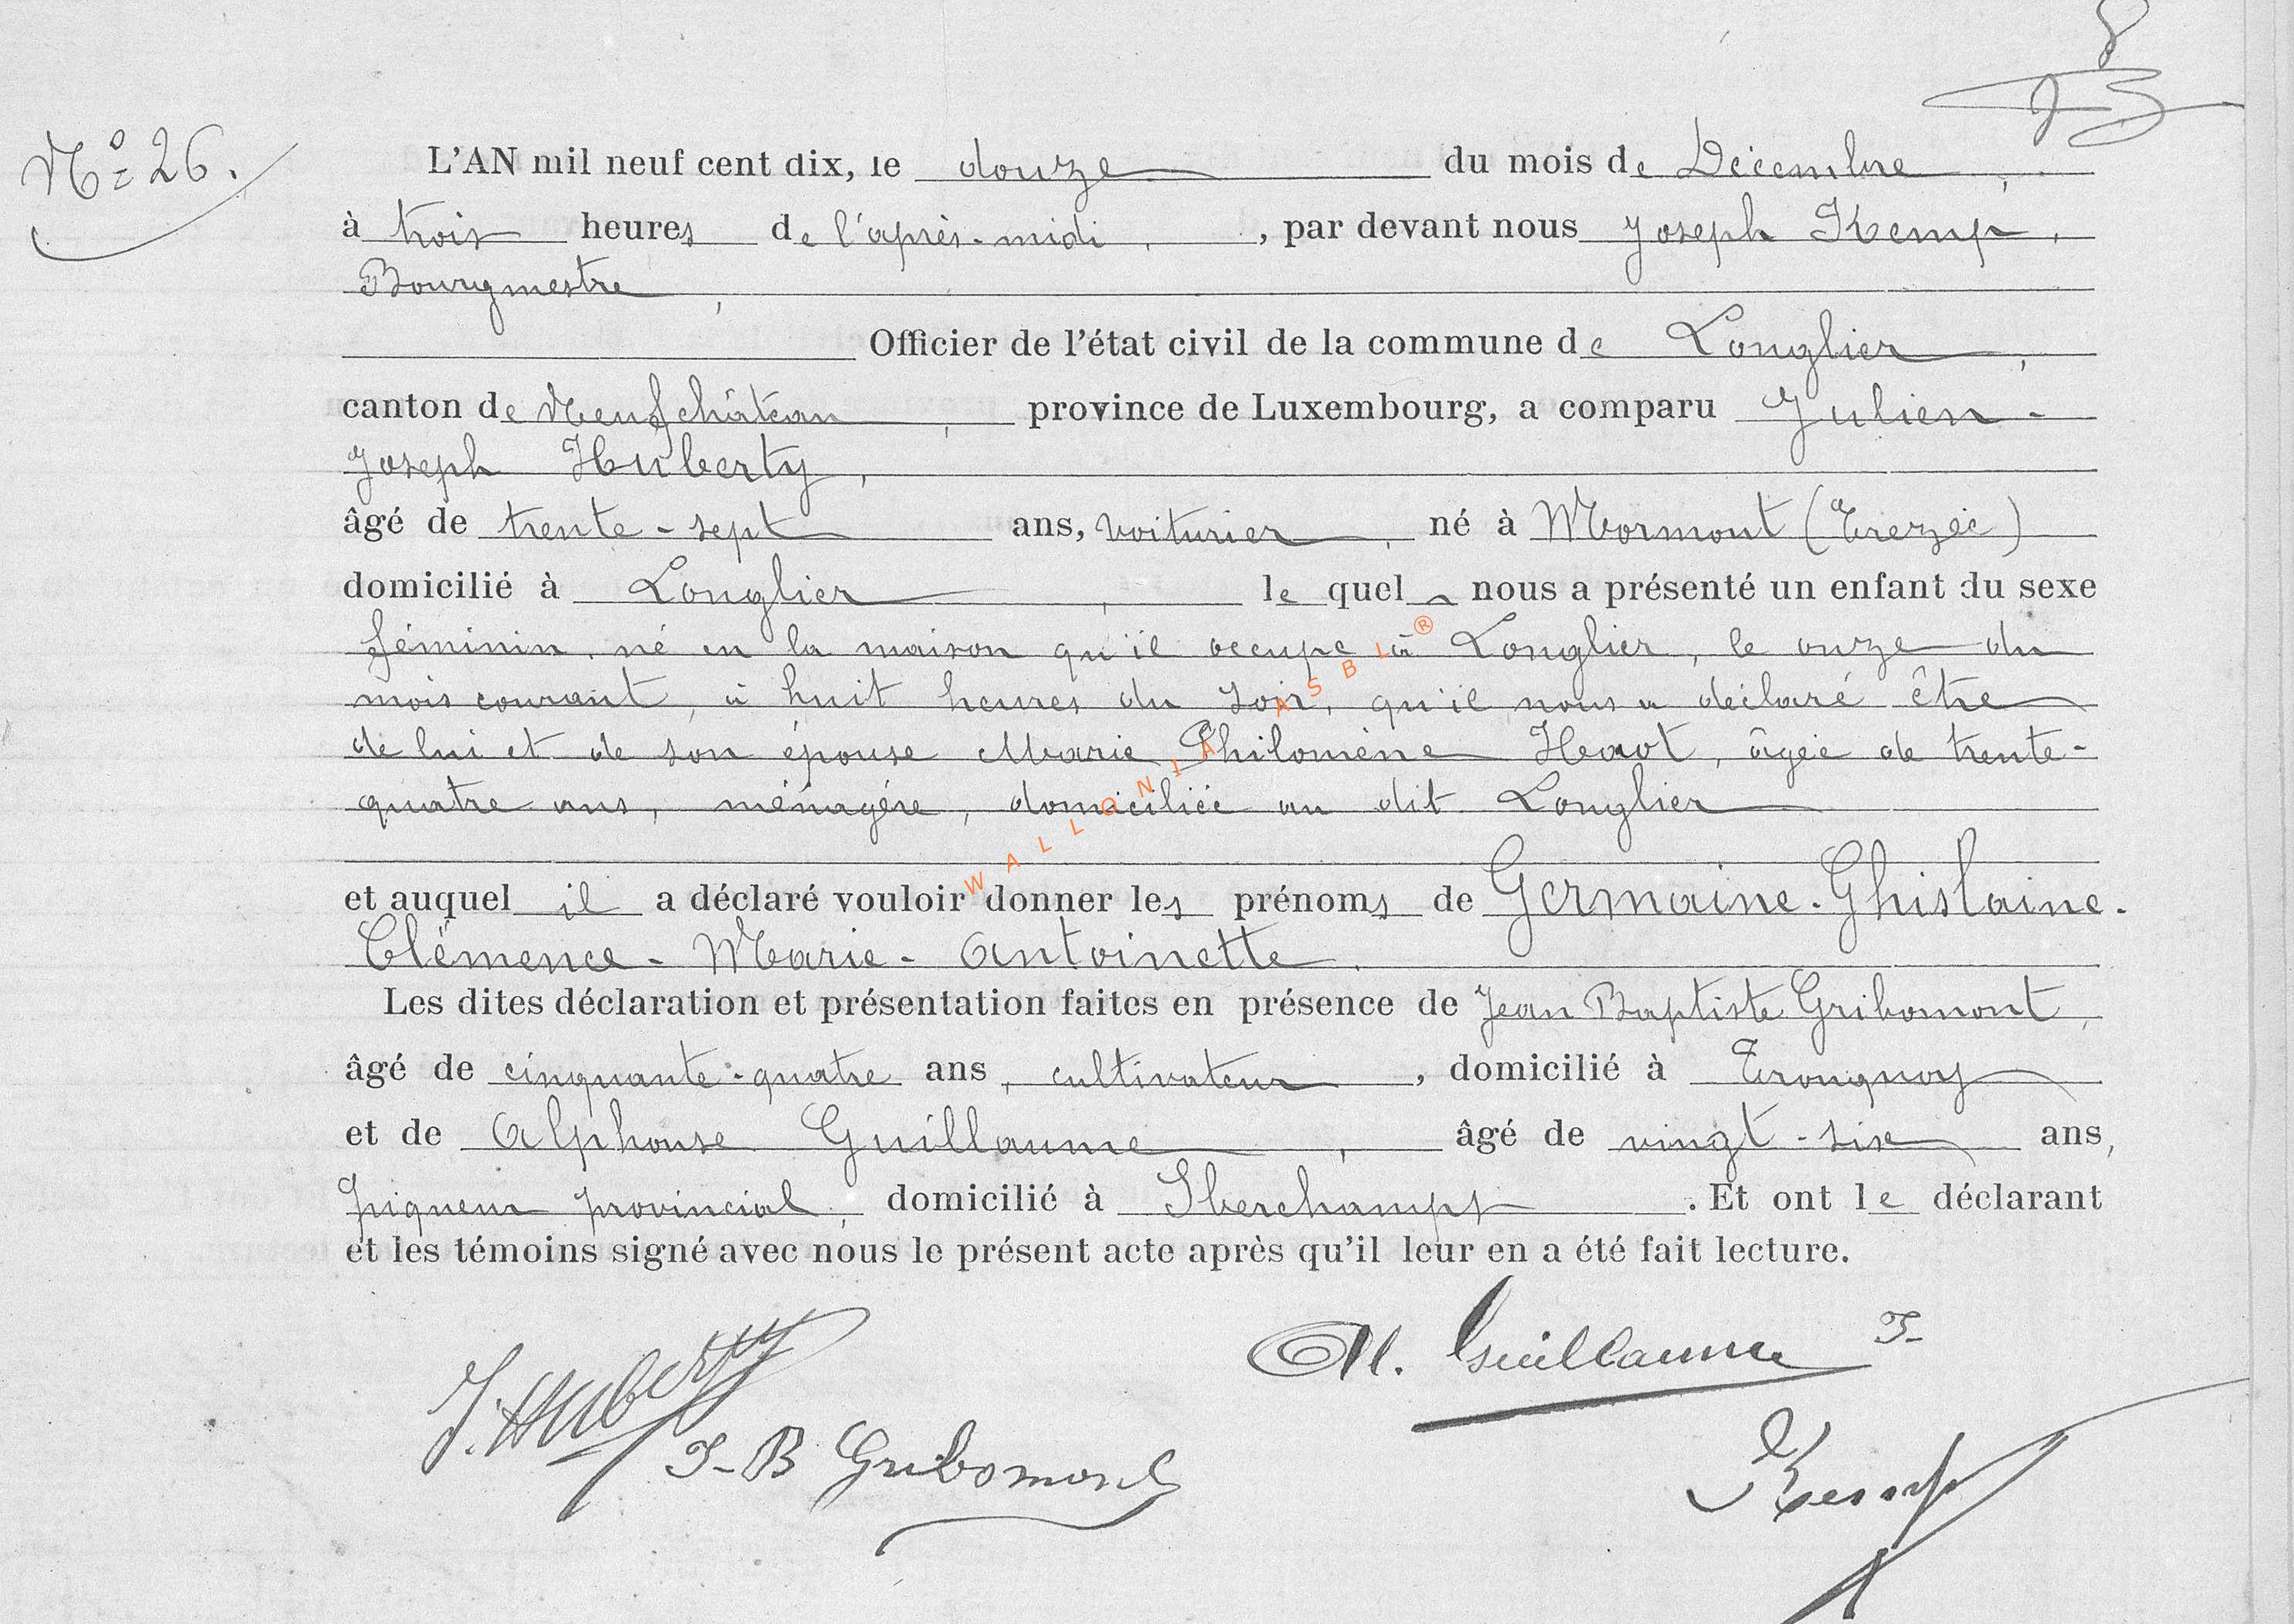 8
N° 26.
L'AN mil neuf cent dix, le douze du mois de Décembre,
à trois heures de l'après-midi, par devant nous Joseph Kemp,
Bourgmestre,
Officier de l'état civil de la commune de Longlier,
canton de Neufchâteau, province de Luxembourg, a comparu Julien-
Joseph Huberty,
âgé de trente-sept ans, voiturier, né à Mormont (Erezée)
domicilié à Longlier, lequel nous a présenté un enfant du sexe
féminin, né en la maison qu'il occupe à Longlier, le onze du
mois courant, à huit heures du soir, qu'il nous a déclaré être
de lui et de son épouse Marie Philomène Havot, âgée de trente-
quatre ans, ménagère, domiciliée au dit Longlier
et auquel il a déclaré vouloir donner les prénoms de Germaine-Ghislaine-
Clémence-Marie-Antoinette.
Les dites déclaration et présentation faites en présence de Jean Baptiste Gribomont,
âgé de cinquante-quatre ans, cultivateur, domicilié à Tronquoy
et de Alphonse Guillaume, âgé de vingt-six ans,
piqueur provincial, domicilié à Sberchamps. Et ont le déclarant
et les témoins signé avec nous le présent acte après qu'il leur en a été fait lecture.
J. Huberty
Al. Guillaume
J-B Gribomont
Kemp
WALLONIA ASBL ®